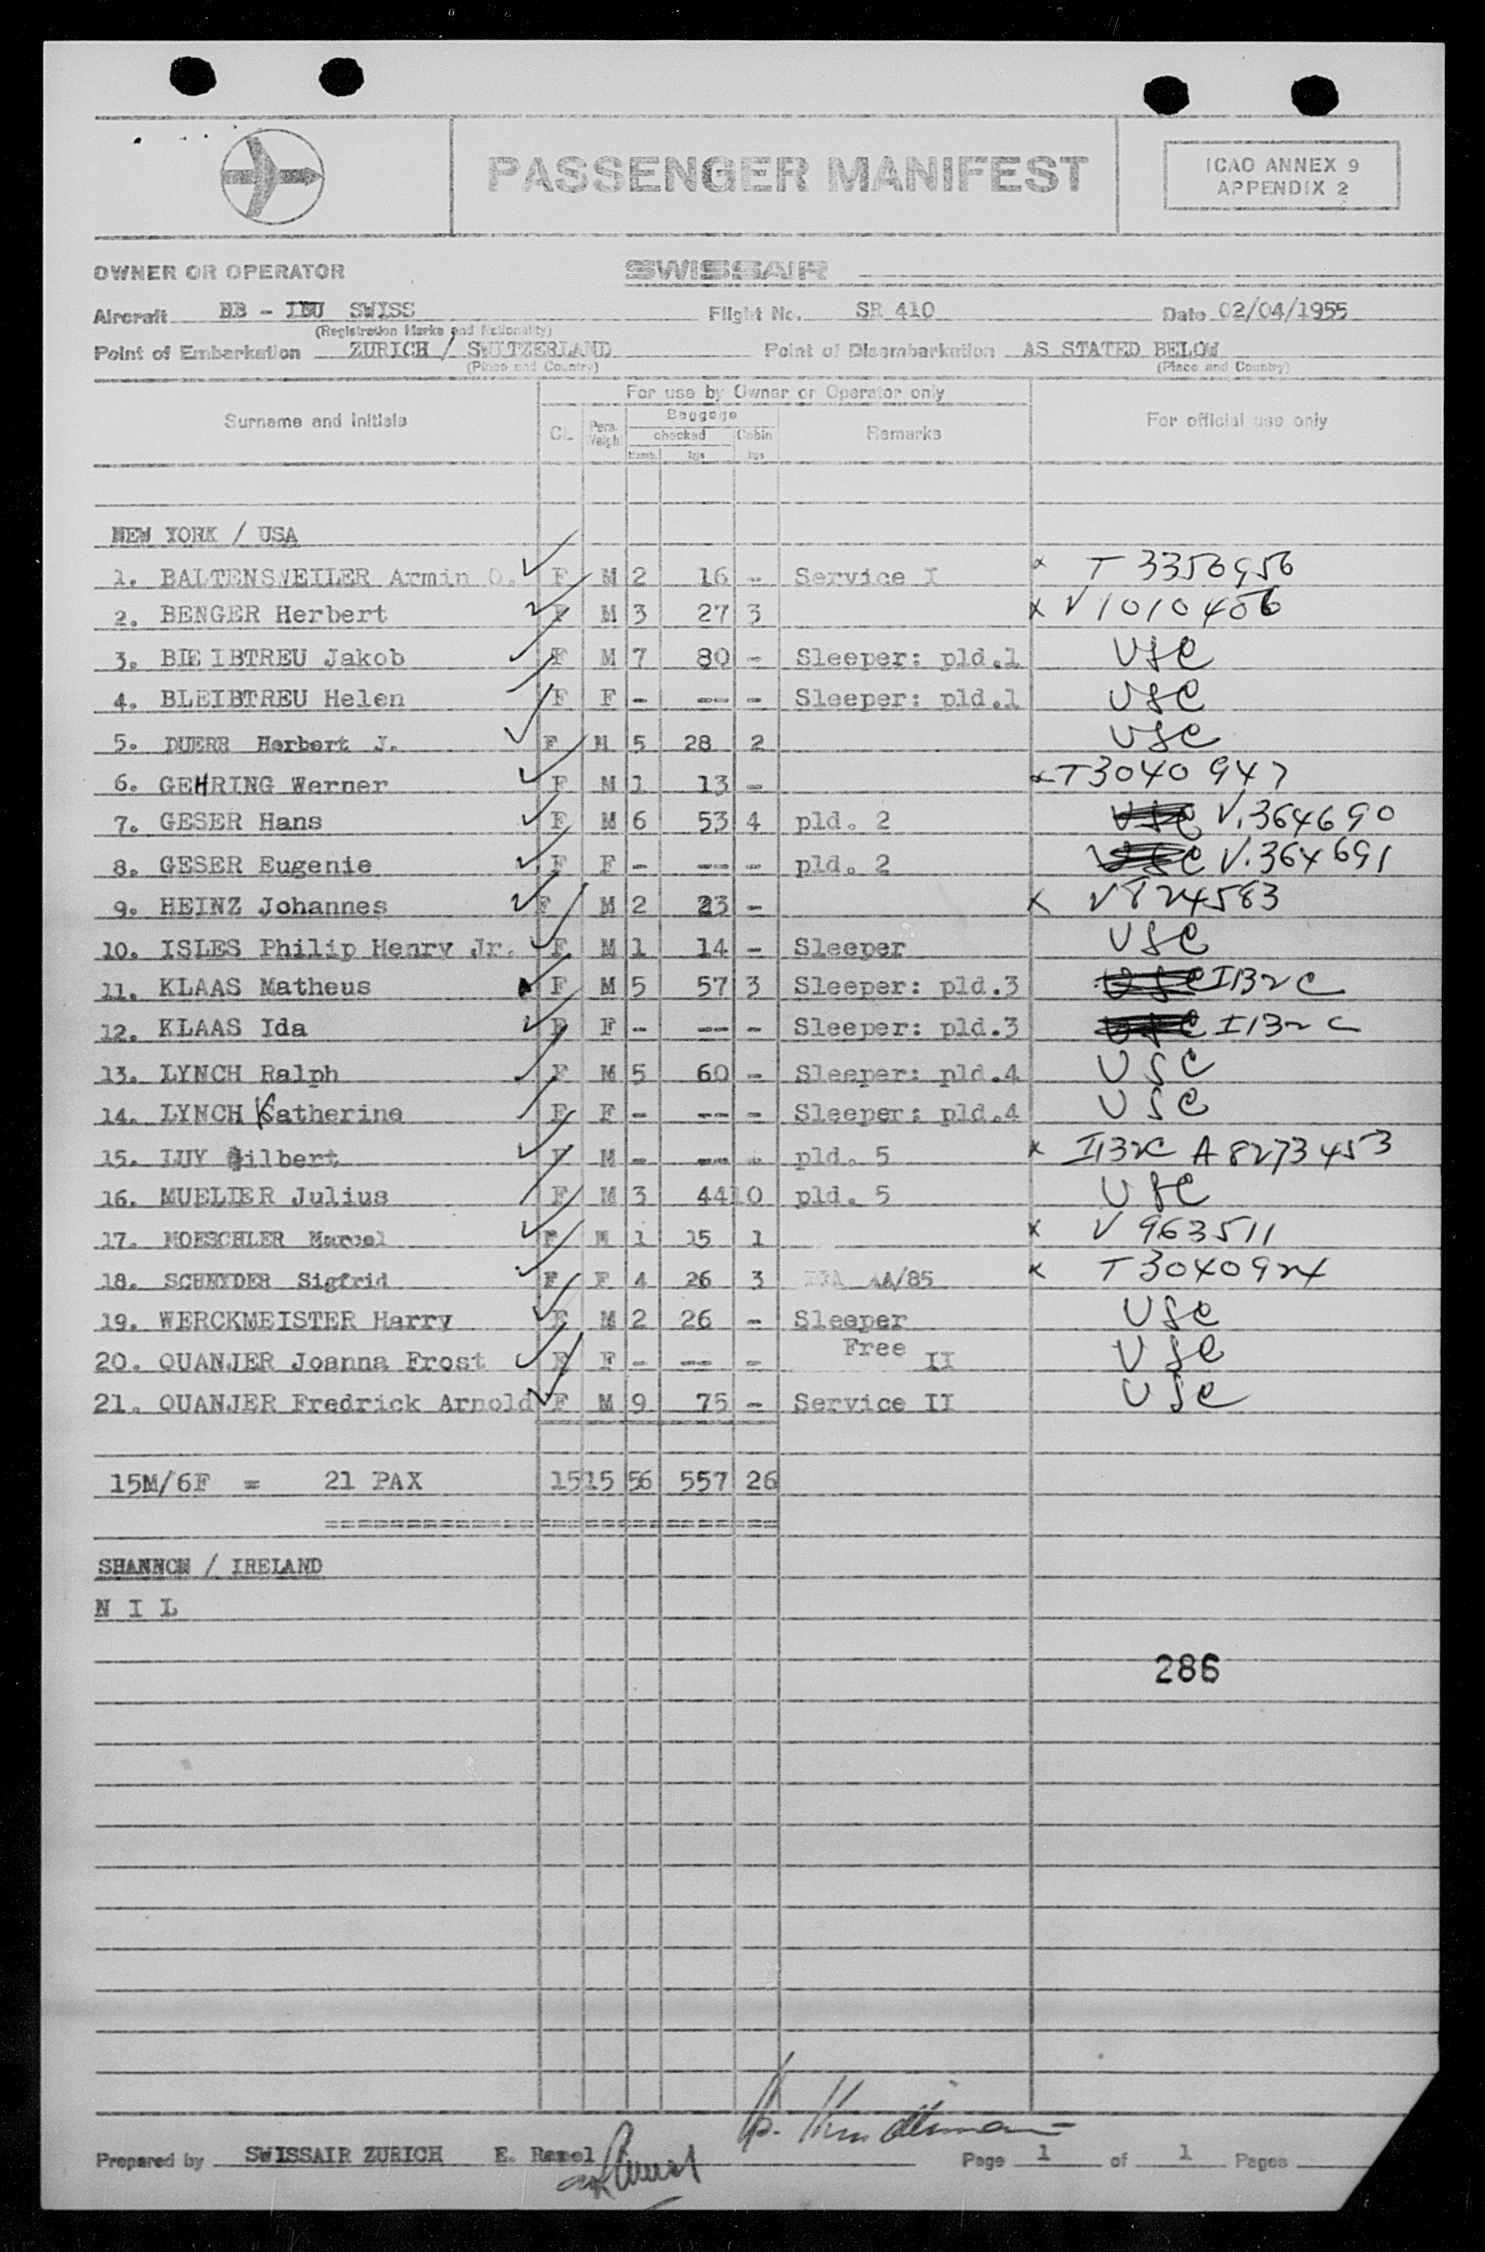 PASSENGER MANIFEST
ICAO ANNEX 9
APPENDIX 2
OWNER OR OPERATOR SWISSAIR
Aircraft HB - IBU SWISS Flight No. SR 410 Date 02/04/1955
(Registration Marks and Nationality)
Point of Embarkation ZURICH / SWITZERLAND Point of Disembarkation AS STATED BELOW
(Place and Country) (Place and Country)
For use by Owner or Operator only
Surname and initials CL. Pers. Weight Baggage checked Numb. kgs Cabin kgs Remarks For official use only
NEW YORK / USA
1. BALTENSWEILER Armin O. F M 2 16 - Service I x T 3356956
2. BENGER Herbert F M 3 27 3 x V 1010406
3. BLEIBTREU Jakob F M 7 80 - Sleeper: pld.1 USC
4. BLEIBTREU Helen F F - --- - Sleeper: pld.1 USC
5. DUERR Herbert J. F M 5 28 2 USC
6. GEHRING Werner F M 1 13 - x T3040947
7. GESER Hans F M 6 53 4 pld. 2 USC V.364690
8. GESER Eugenie F F - --- - pld. 2 USC V.364691
9. HEINZ Johannes F M 2 23 - x V824583
10. ISLES Philip Henry Jr. F M 1 14 - Sleeper USC
11. KLAAS Matheus F M 5 57 3 Sleeper: pld.3 USC I132C
12. KLAAS Ida F F - --- - Sleeper: pld.3 USC I132C
13. LYNCH Ralph F M 5 60 - Sleeper: pld.4 USC
14. LYNCH Katherine F F - --- - Sleeper: pld.4 USC
15. LUY Gilbert F M - --- - pld. 5 x I132C A8273453
16. MUELLER Julius F M 3 44 10 pld. 5 USC
17. MOESCHLER Marcel F M 1 15 1 x V 963511
18. SCHNYDER Sigfrid F F 4 26 3 AA/85 x T3040924
19. WERCKMEISTER Harry F M 2 26 - Sleeper USC
20. QUANJER Joanna Frost F F - --- - Free II USC
21. QUANJER Fredrick Arnold F M 9 75 - Service II USC
15M/6F = 21 PAX 15 15 56 557 26
============================
SHANNON / IRELAND
N I L
286
Prepared by SWISSAIR ZURICH E. Ramel Page 1 of 1 Pages